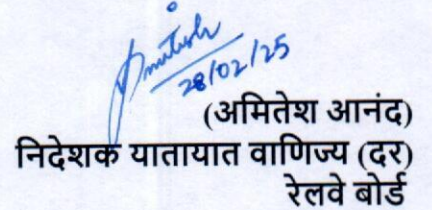 Amitesh
28/02/25
(अमितेश आनंद)
निदेशक यातायात वाणिज्य (दर)
रेलवे बोर्ड